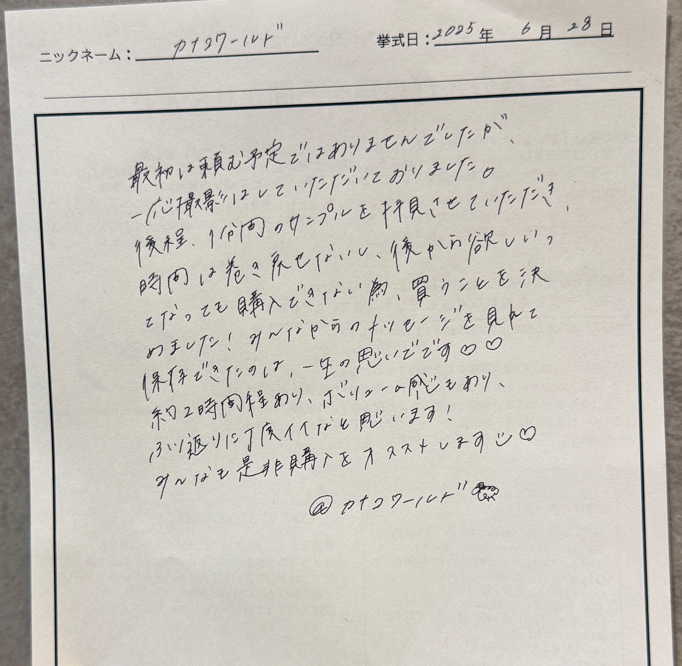 ニックネーム：カナコワールド 挙式日：2025年 6月 28日
最初は頼む予定ではありませんでしたが、
一応撮影はしていただいておりました。
後程、1分間のサンプルを拝見させていただき、
時間は巻き戻せないし、後から欲しいっ
てなっても購入できない為、買うことを決
めました！みんなからのメッセージを見れて
保存できたのは、一生の思いでです♡♡
約2時間程あり、ボリューム感もあり、
ふり返りに丁度イイなと思います！
みんなも是非購入をオススメします♡
@カナコワールド